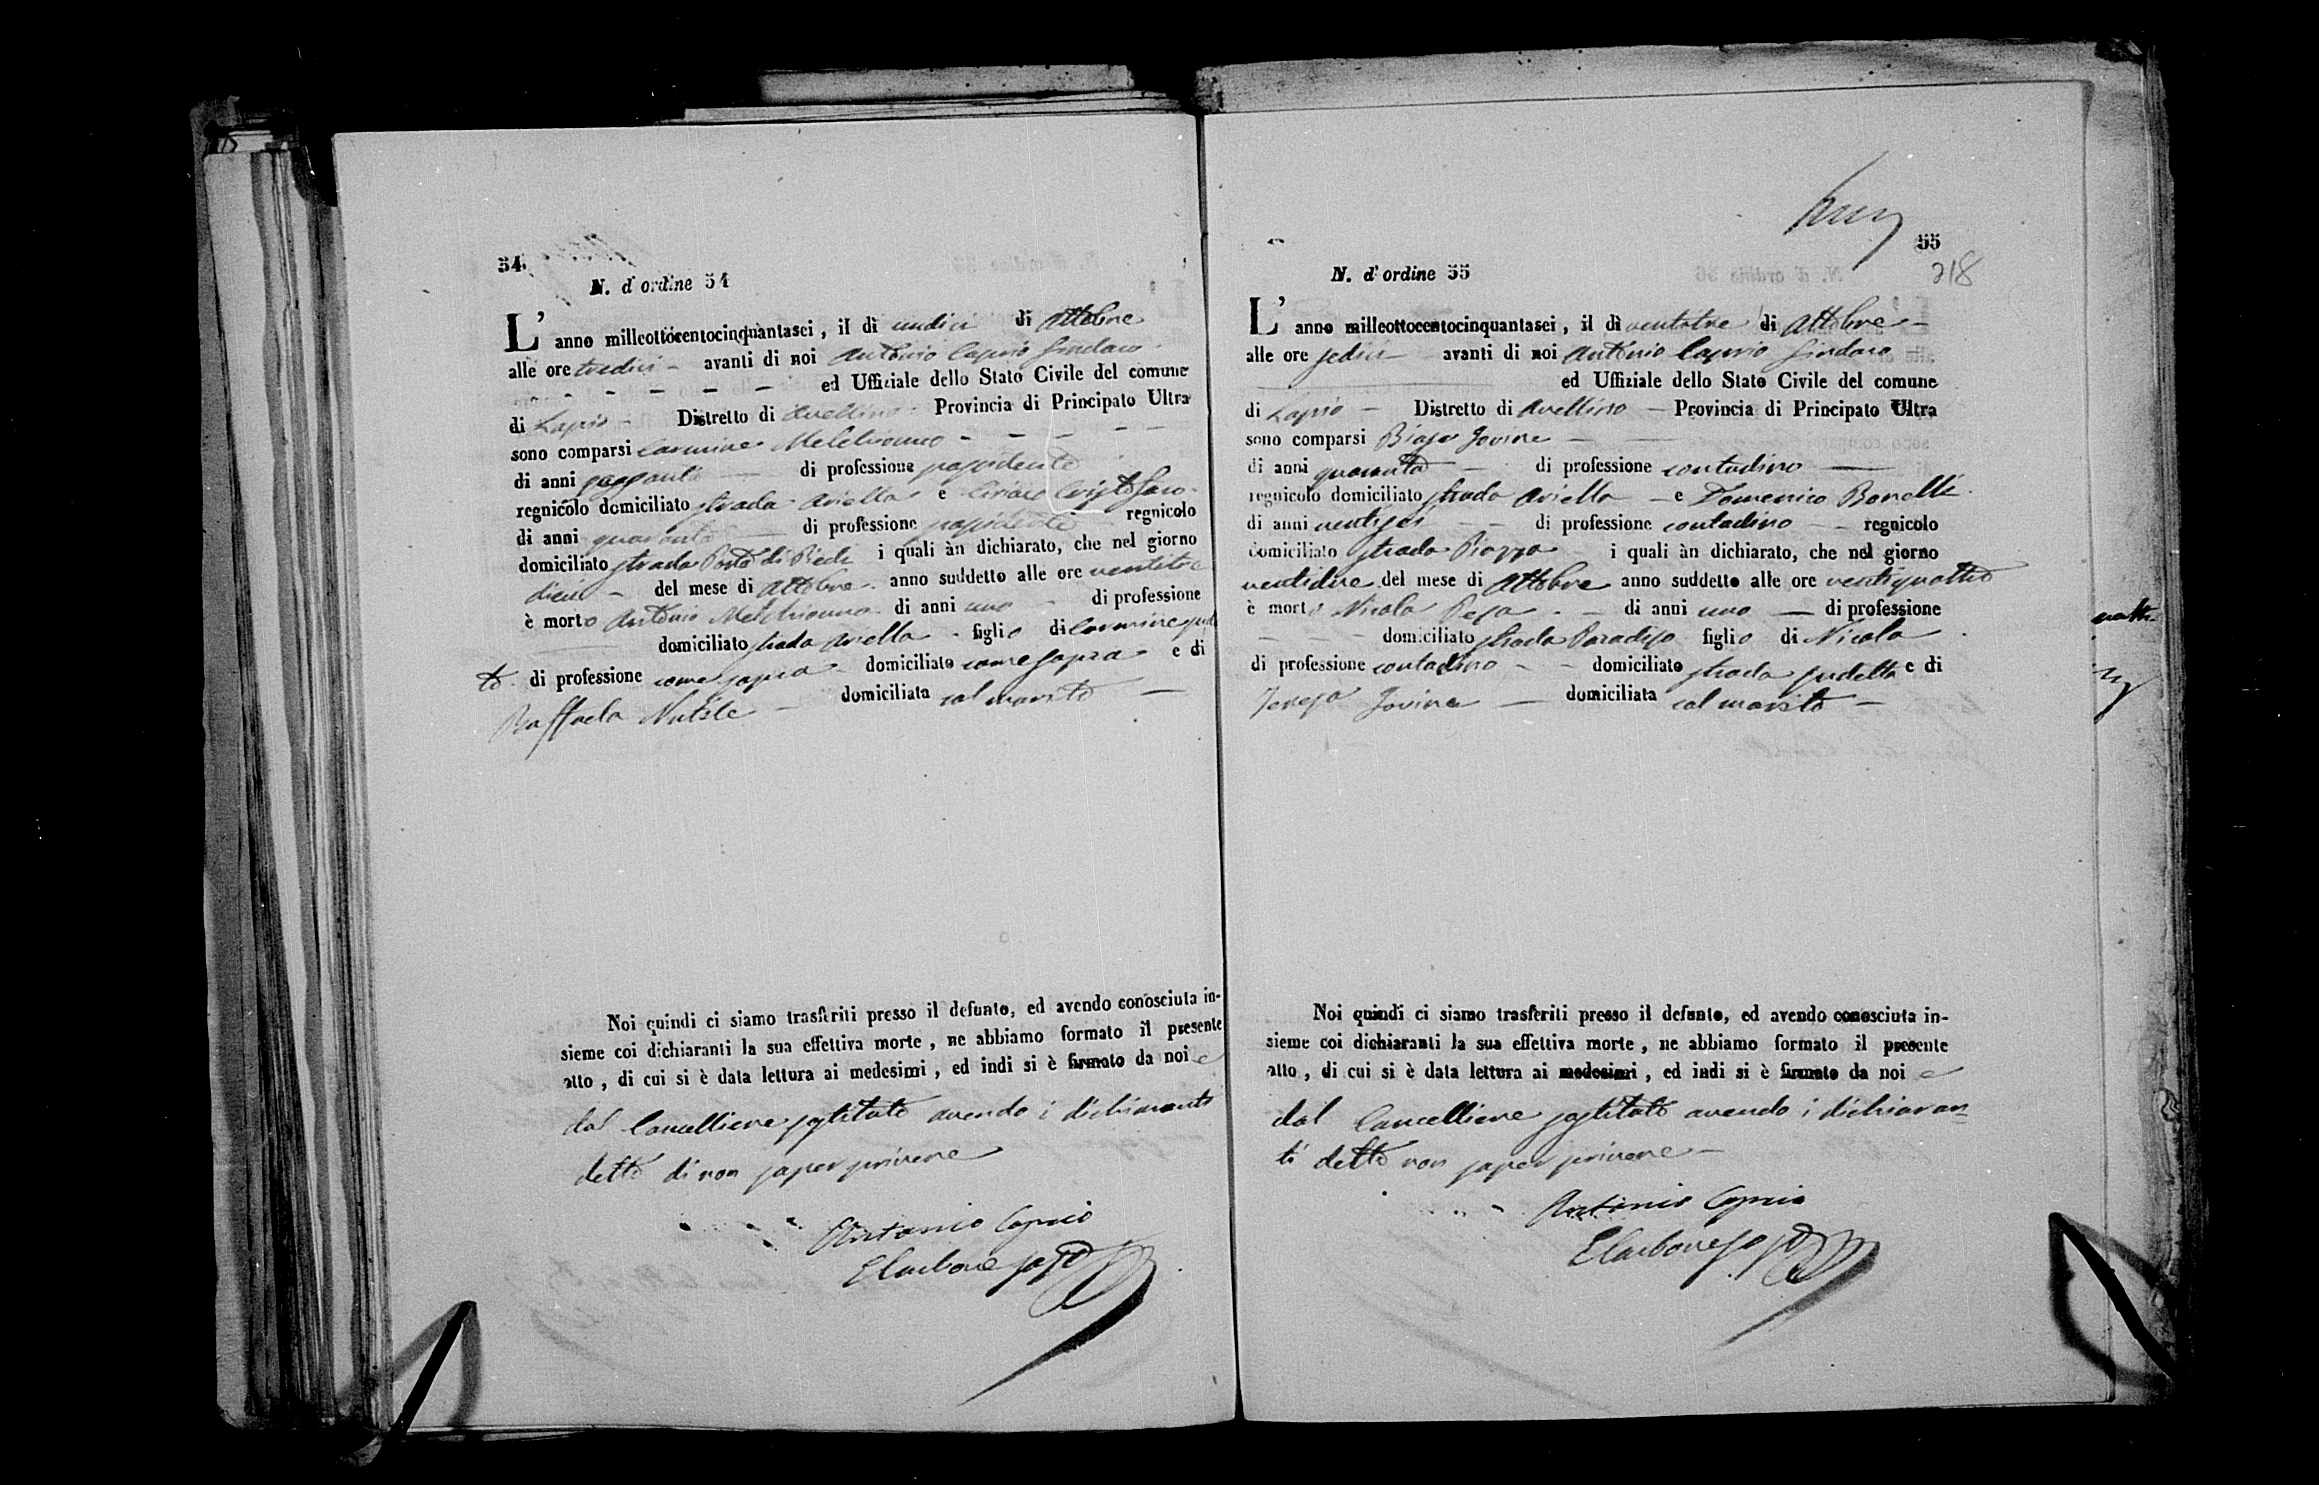 54
N. d'ordine 54
L'anno milleottocentocinquantasei, il dì undici di Ottobre
alle ore tredici avanti di noi Antonio Caprio Sindaco
ed Uffiziale dello Stato Civile del comune
di Lapio Distretto di Avellino Provincia di Principato Ultra
sono comparsi Carmine Melchionno
di anni sessanta di professione possidente
regnicolo domiciliato strada Ariella e Ciriaco Cristofaro
di anni quaranta di professione possidente regnicolo
domiciliato strada Porta di Piedi i quali àn dichiarato, che nel giorno
dieci del mese di Ottobre anno suddetto alle ore ventitre
è morto Antonio Melchionno di anni uno di professione
domiciliato strada Ariella figlio di Carmine sud
to di professione come sopra domiciliato come sopra e di
Raffaela domiciliata col marito
Noi quindi ci siamo trasferiti presso il defunto, ed avendo conosciuta in-
sieme coi dichiaranti la sua effettiva morte, ne abbiamo formato il presente
atto, di cui si è data lettura ai medesimi, ed indi si è firmato da noi e
dal Cancelliere sostituto avendo i dichiaranti
detto di non saper scrivere
Antonio Caprio
E Carbone sosto
55
218
N. d'ordine 55
L'anno milleottocentocinquantasei, il dì ventitre di Ottobre
alle ore sedici avanti di noi Antonio Caprio Sindaco
ed Uffiziale dello Stato Civile del comune
di Lapio Distretto di Avellino Provincia di Principato Ultra
sono comparsi Biagio Jovine
di anni quaranta di professione contadino
regnicolo domiciliato strada Ariella e Domenico Bonelli
di anni ventisei di professione contadino regnicolo
domiciliato strada Piazza i quali àn dichiarato, che nel giorno
ventidue del mese di Ottobre anno suddetto alle ore ventiquattro
è morto Nicola Pesa di anni uno di professione
domiciliato strada Paradiso figlio di Nicola
di professione contadino domiciliato strada sudetta e di
Teresa Jovine domiciliata col marito
Noi quindi ci siamo trasferiti presso il defunto, ed avendo conosciuta in-
sieme coi dichiaranti la sua effettiva morte, ne abbiamo formato il presente
atto, di cui si è data lettura ai medesimi, ed indi si è firmato da noi e
dal Cancelliere sostituto avendo i dichiaran=
ti detto non saper scrivere
Antonio Caprio
E Carbone sosto